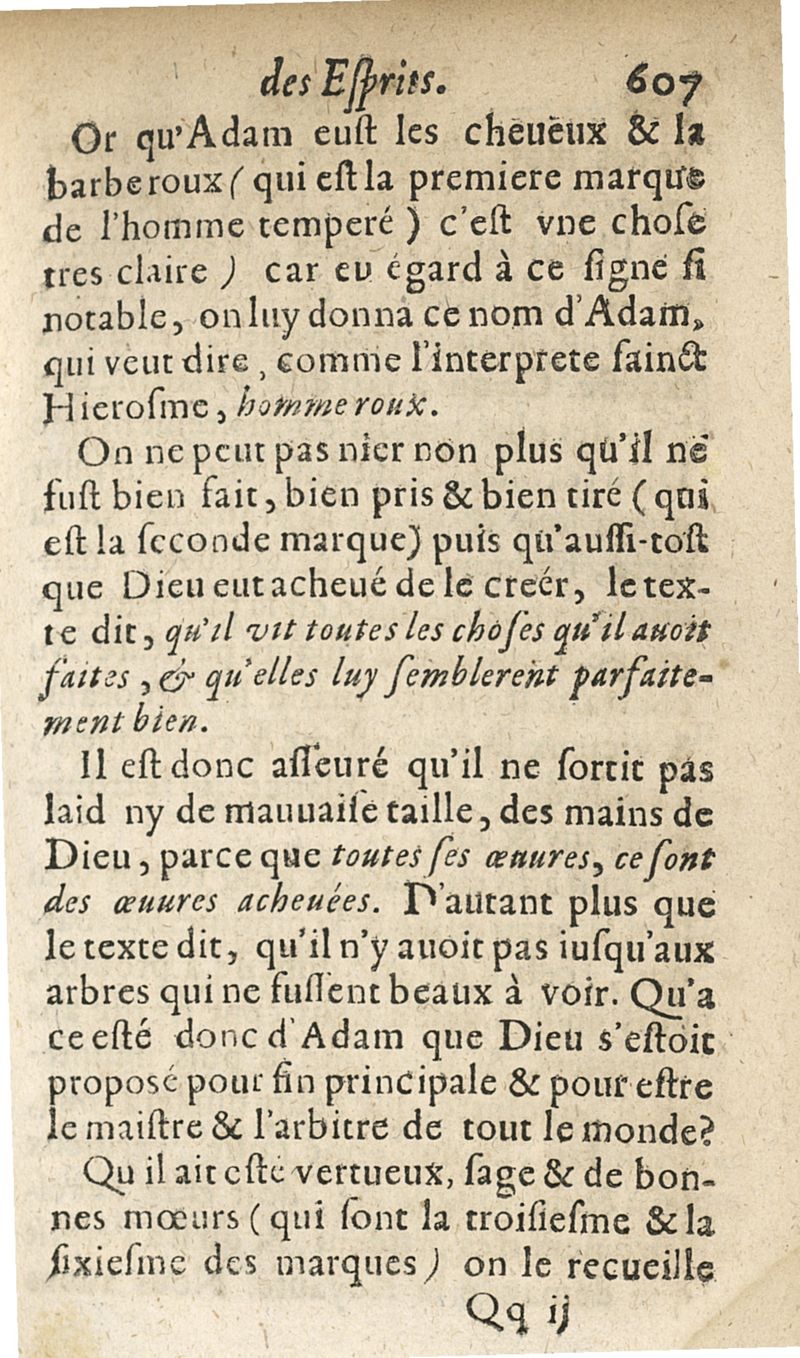 des Eſprits. 607
Or qu'Adam euſt les cheueux & la
barbe roux ( qui eſt la premiere marque
de l'homme temperé ) c'eſt vne choſe
tres claire ) car eu égard à ce ſigne ſi
notable, on luy donna ce nom d'Adam,
qui veut dire, comme l'interprete ſainct
Hieroſme, homme roux.
On ne peut pas nier non plus qu'il ne
fuſt bien fait, bien pris & bien tiré ( qui
eſt la ſeconde marque) puis qu'auſſi-toſt
que Dieu eut acheué de le creér, le tex-
te dit, qu'il vit toutes les choſes qu'il auoit
faites, & qu'elles luy ſemblerent parfaite-
ment bien.
Il eſt donc aſſeuré qu'il ne ſortit pas
laid ny de mauuaiſe taille, des mains de
Dieu, parce que toutes ſes œuures, ce ſont
des œuures acheuées. D'autant plus que
le texte dit, qu'il n'y auoit pas iuſqu'aux
arbres qui ne fuſſent beaux à voir. Qu'a
ce eſté donc d'Adam que Dieu s'eſtoit
propoſé pour fin principale & pour eſtre
le maiſtre & l'arbitre de tout le monde?
Qu il ait eſté vertueux, ſage & de bon-
nes mœurs ( qui ſont la troiſieſme & la
ſixieſme des marques ) on le recueille
Qq ij